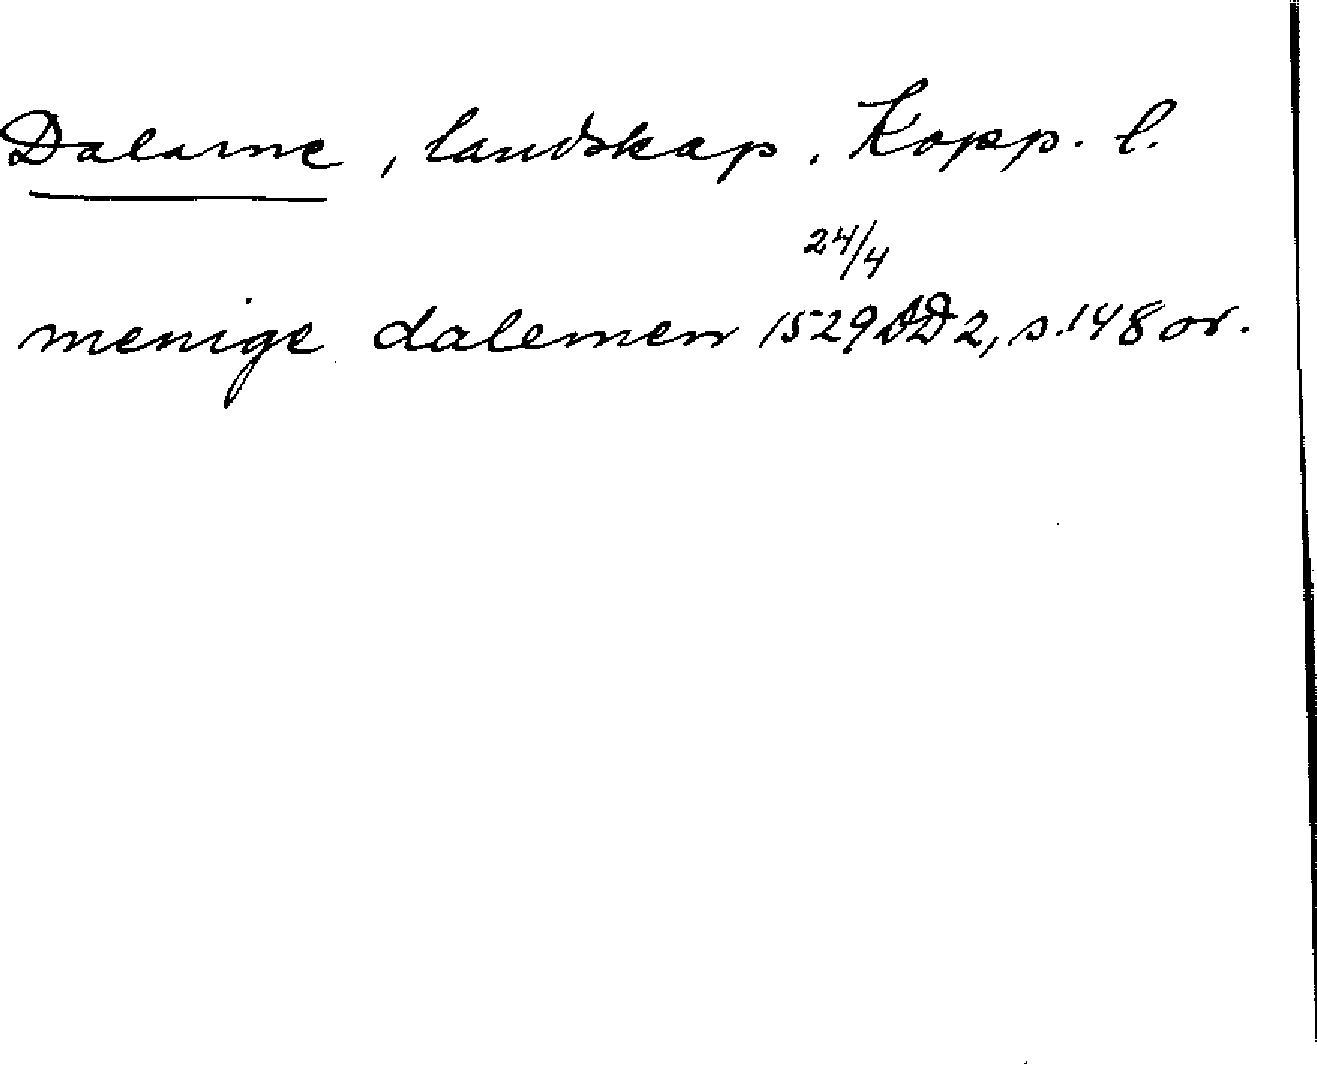 Dalarne, landskap. Kopp. l.
24/4
menige dalemen 1529 DD2, s.148 or.